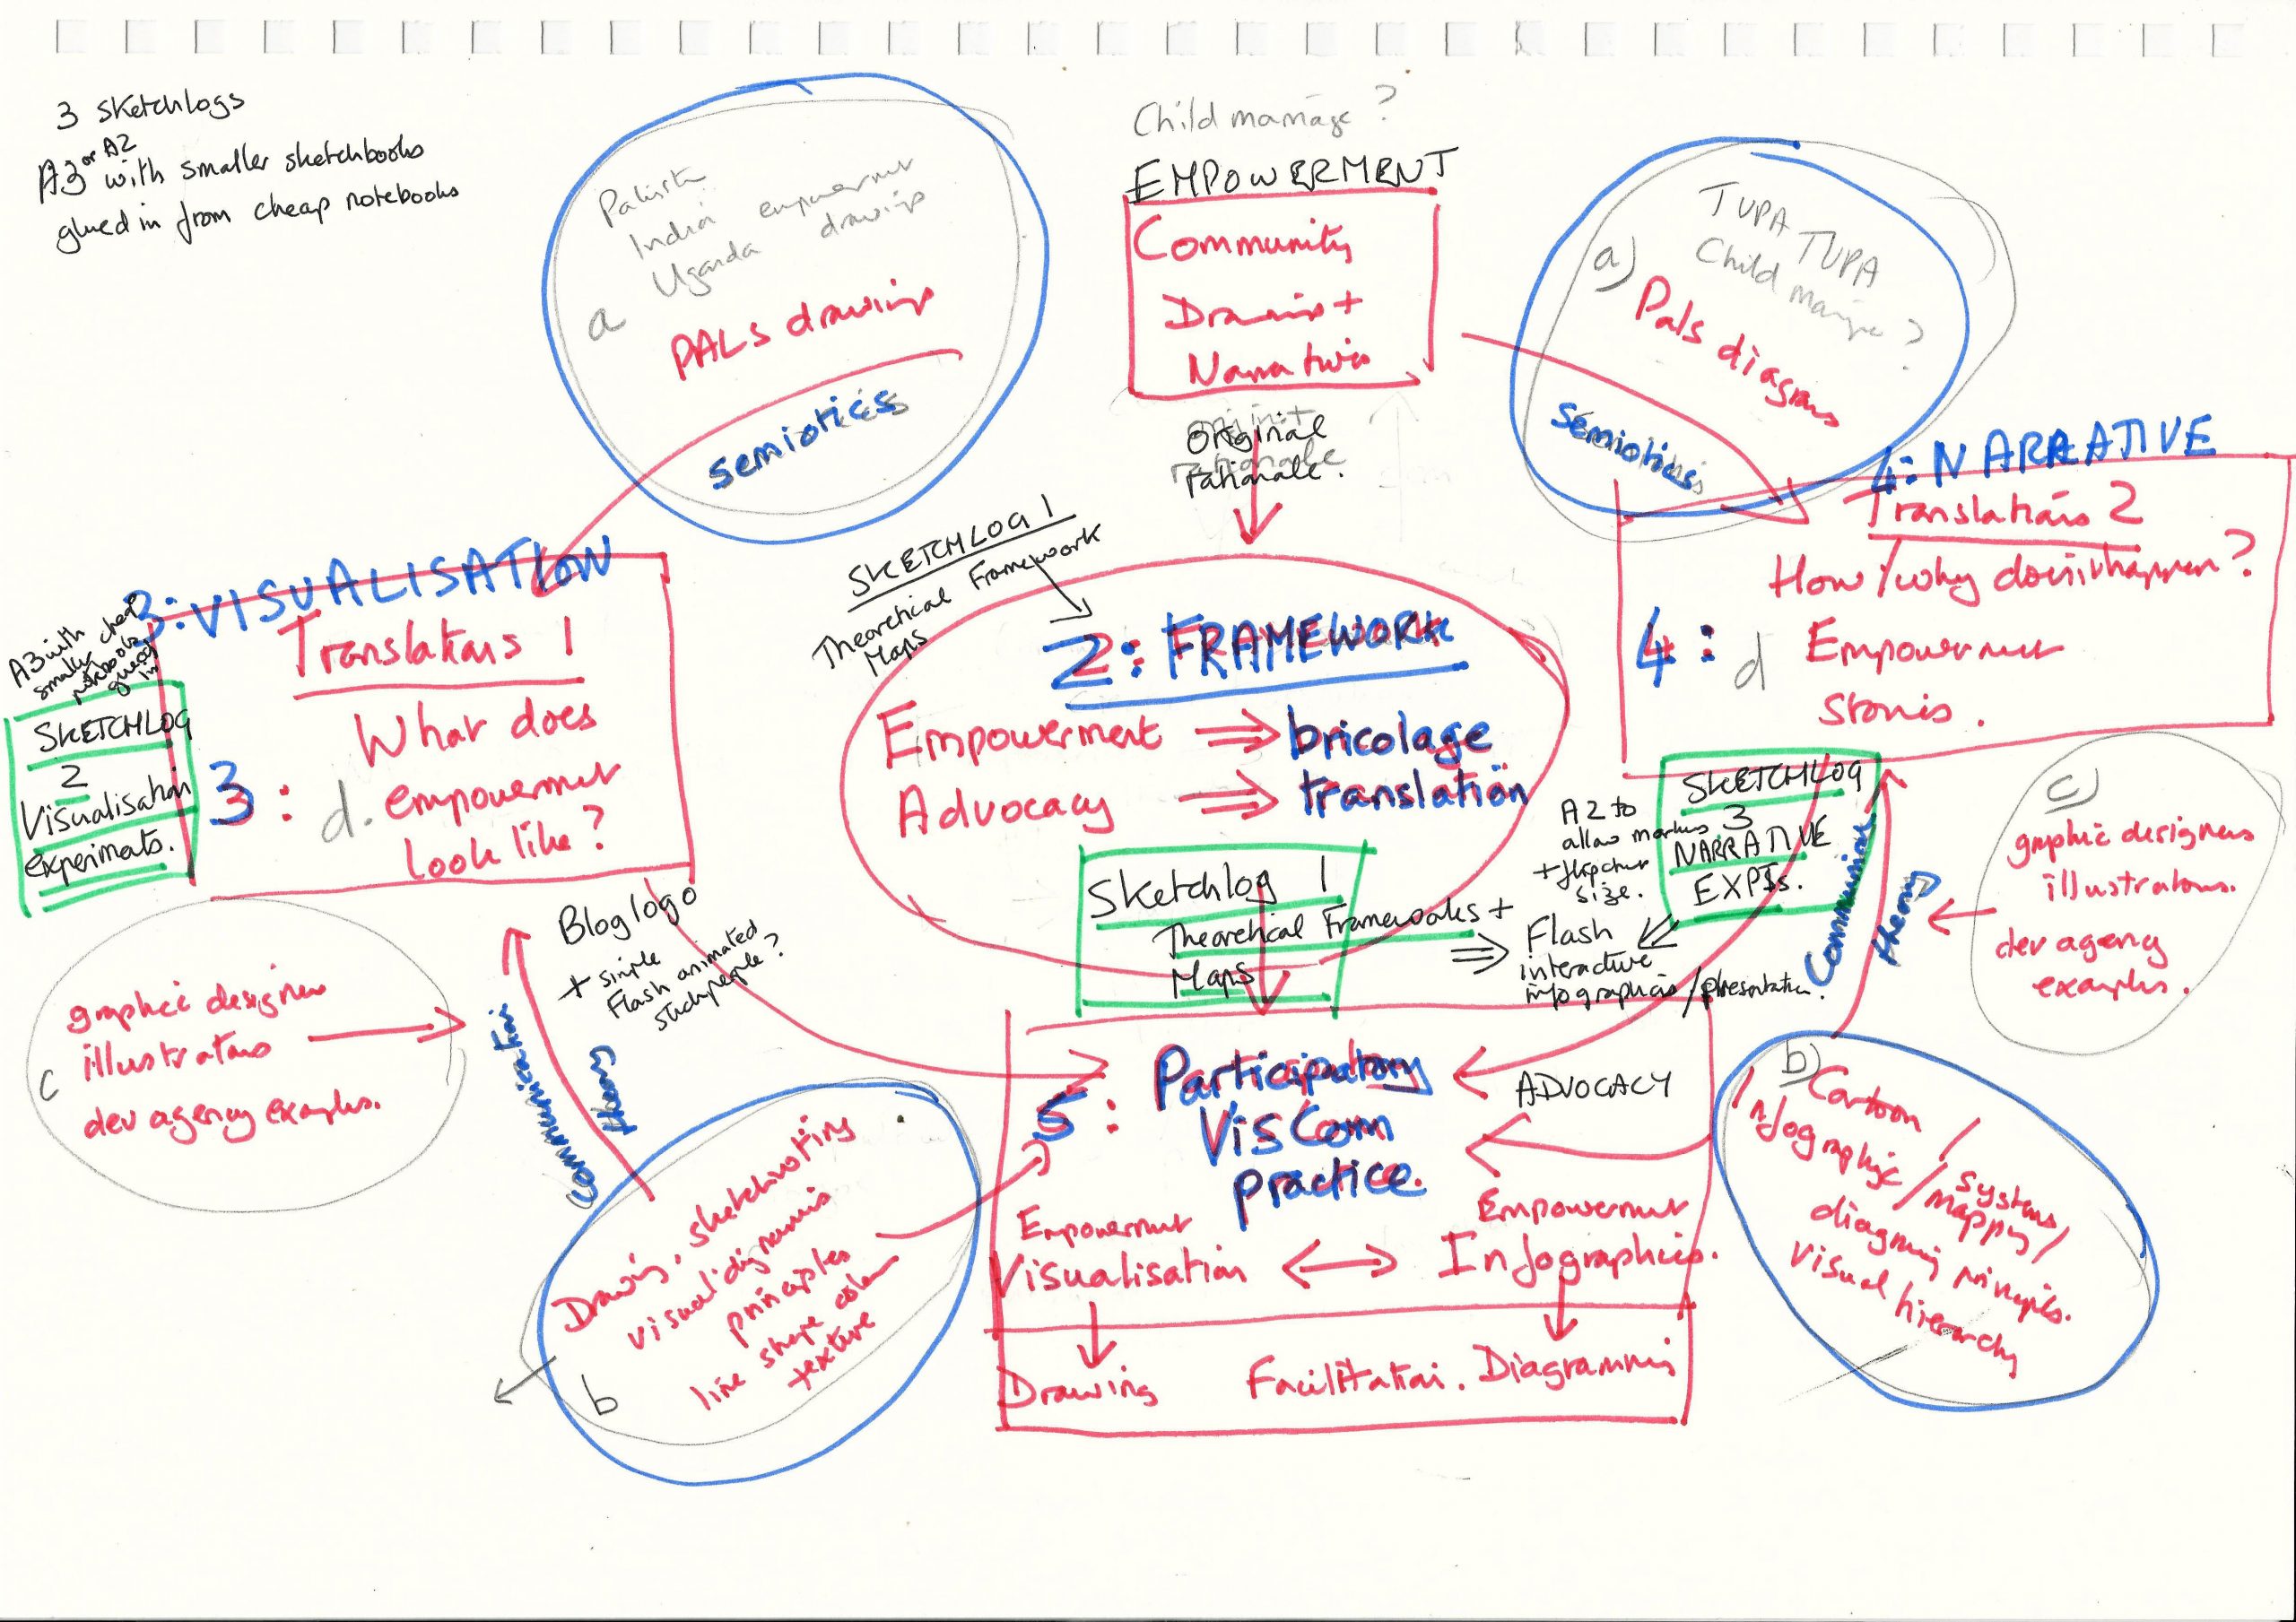 3 sketchlogs
A3 or A2
with smaller sketchbooks
glued in from cheap notebooks
India empowerment
Uganda drawings
a
PALs drawings
semiotics
Child marriage?
EMPOWERMENT
Community
Drawings +
Narratives
Original
rationale.
TUPA TUPA
Child marriage?
a) Pals diagrams
Semiotics
3: VISUALISATION
Translations 1
3: d. What does
empowerment
look like?
A3 with
smaller cheap
notebooks
glued
in
SKETCHLOG
2
Visualisation
experiments.
SKETCHLOG 1
Theoretical Framework
Maps
2: FRAMEWORK
Empowerment ⇒ bricolage
Advocacy ⇒ translation
Sketchlog 1
Theoretical Frameworks +
Maps
4: NARRATIVE
Translations 2
How/why does it happen?
4: d Empowerment
stories.
SKETCHLOG
3
NARRATIVE
EXPTs.
A2 to
allow markers
+ flipchart
size.
⇒ Flash
interactive
infographics/presentation.
Communication
theory
c)
graphic designers
illustrators.
dev agency
examples.
Blog logo
+ simple
Flash animated
stickpeople?
c
graphic designers
illustrators
dev agency examples.
Communication
theory
b
Drawing, sketchnoting
visual dynamics
principles
line shape colour
texture
5: Participatory
VisCom
practice.
ADVOCACY
Empowerment
Visualisation
Empowerment
Infographics.
Drawing
Facilitation.
Diagramming
b)
Cartoon
Infographic / systems
mapping /
diagramming principles.
visual hierarchy